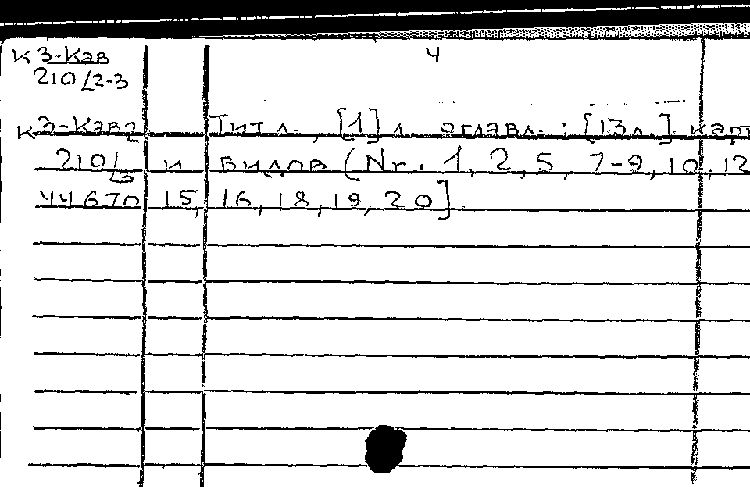 К 3-Кав
210/2-3
4
К 3-Кав2 Титл., [1] л. оглавл.; [13л.] карт
210/3 и видов (Nr. 1, 2, 5, 7-9, 10, 12
44670 15, 16, 18, 19, 20].